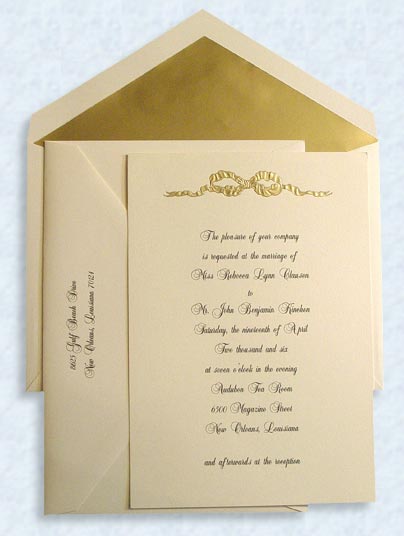 The pleasure of your company
is requested at the marriage of
Miss Rebecca Lynn Clausen
to
Mr. John Benjamin Kinchen
Saturday, the nineteenth of April
Two thousand and six
at seven o'clock in the evening
Audubon Tea Room
6500 Magazine Street
New Orleans, Louisiana
and afterwards at the reception
8625 Gulf Beach Drive
New Orleans, Louisiana 70121